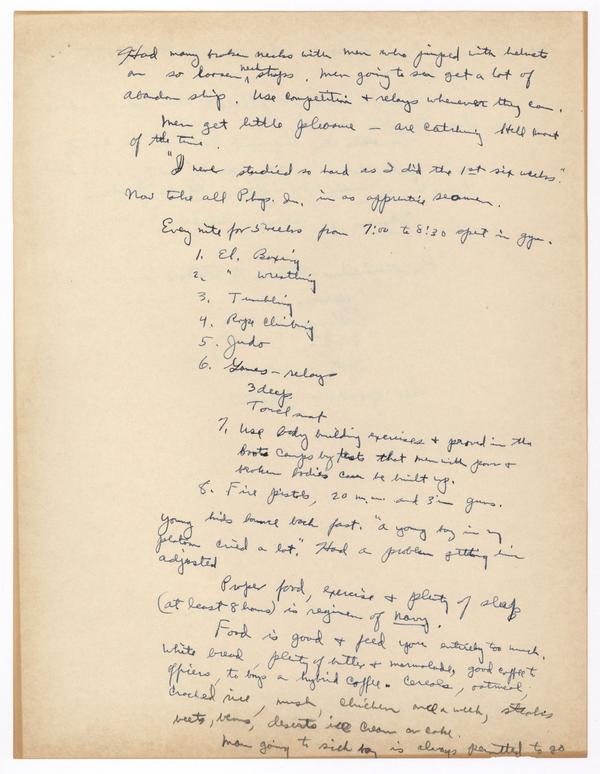 Had many broken necks with men who jumped with helmets
on so loosen neck straps. Men going to sea get a lot of
abandon ship. Use competition & relays whenever they can.
Men get little pleasure – are catching Hell most
of the time.
"I never studied so hard as I did the 1st six weeks."
Now take all Phys. In. in as apprentice seamen.
Every nite for 5 weeks from 7:00 to 8:30 spent in gym.
1. El. Boxing
2. " wrestling
3. Tumbling
4. Rope climbing
5. Judo
6. Games – relays
3 deep
Towel snap
7. Use body building exercises & proved in the
boots camps by tests that men with poor &
broken bodies can be built up.
8. Fire pistols, 20 m.m. and 3 in guns.
Young kids bounce back fast. "a young boy in my
platoon cried a lot." Had a problem getting him
adjusted
Proper food, exercise & plenty of sleep
(at least 8 hours) is regimen of Navy.
Food is good & feed you entirely too much.
White bread, plenty of butter & marmalade, good coffee to
officers, to boys a hybrid coffee. Cereals, oatmeal,
cracked rice, mush, chicken once a week, steaks
beets, beans, deserts ice cream or cake.
Man going to sick bay is always permitted to go